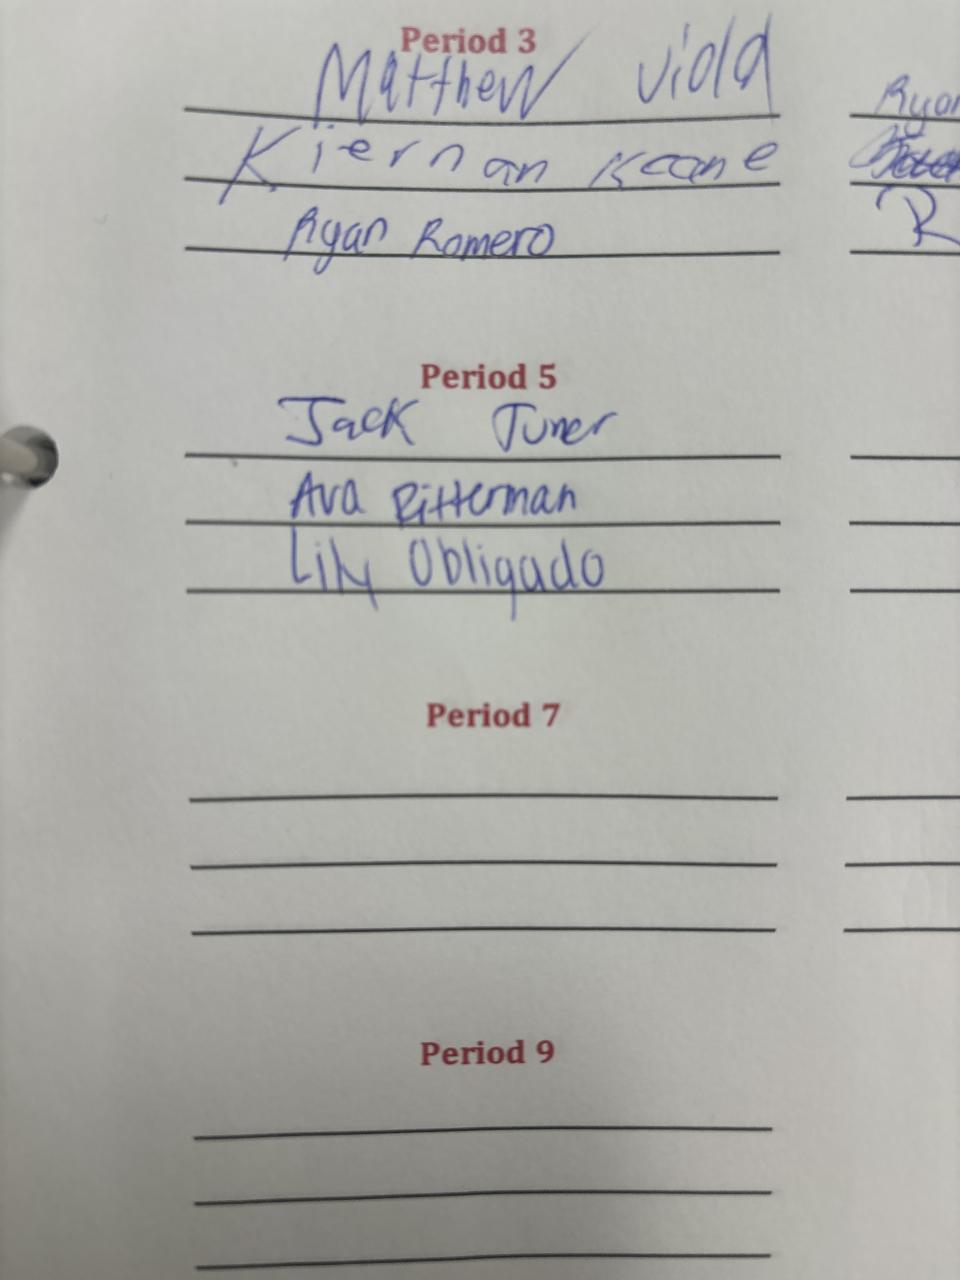 Period 3
Matthew Viola
Kiernan Keane
Ryan Romero
Ryan
R
Period 5
Jack Turner
Ava Ritterman
Lily Obligado
Period 7
Period 9